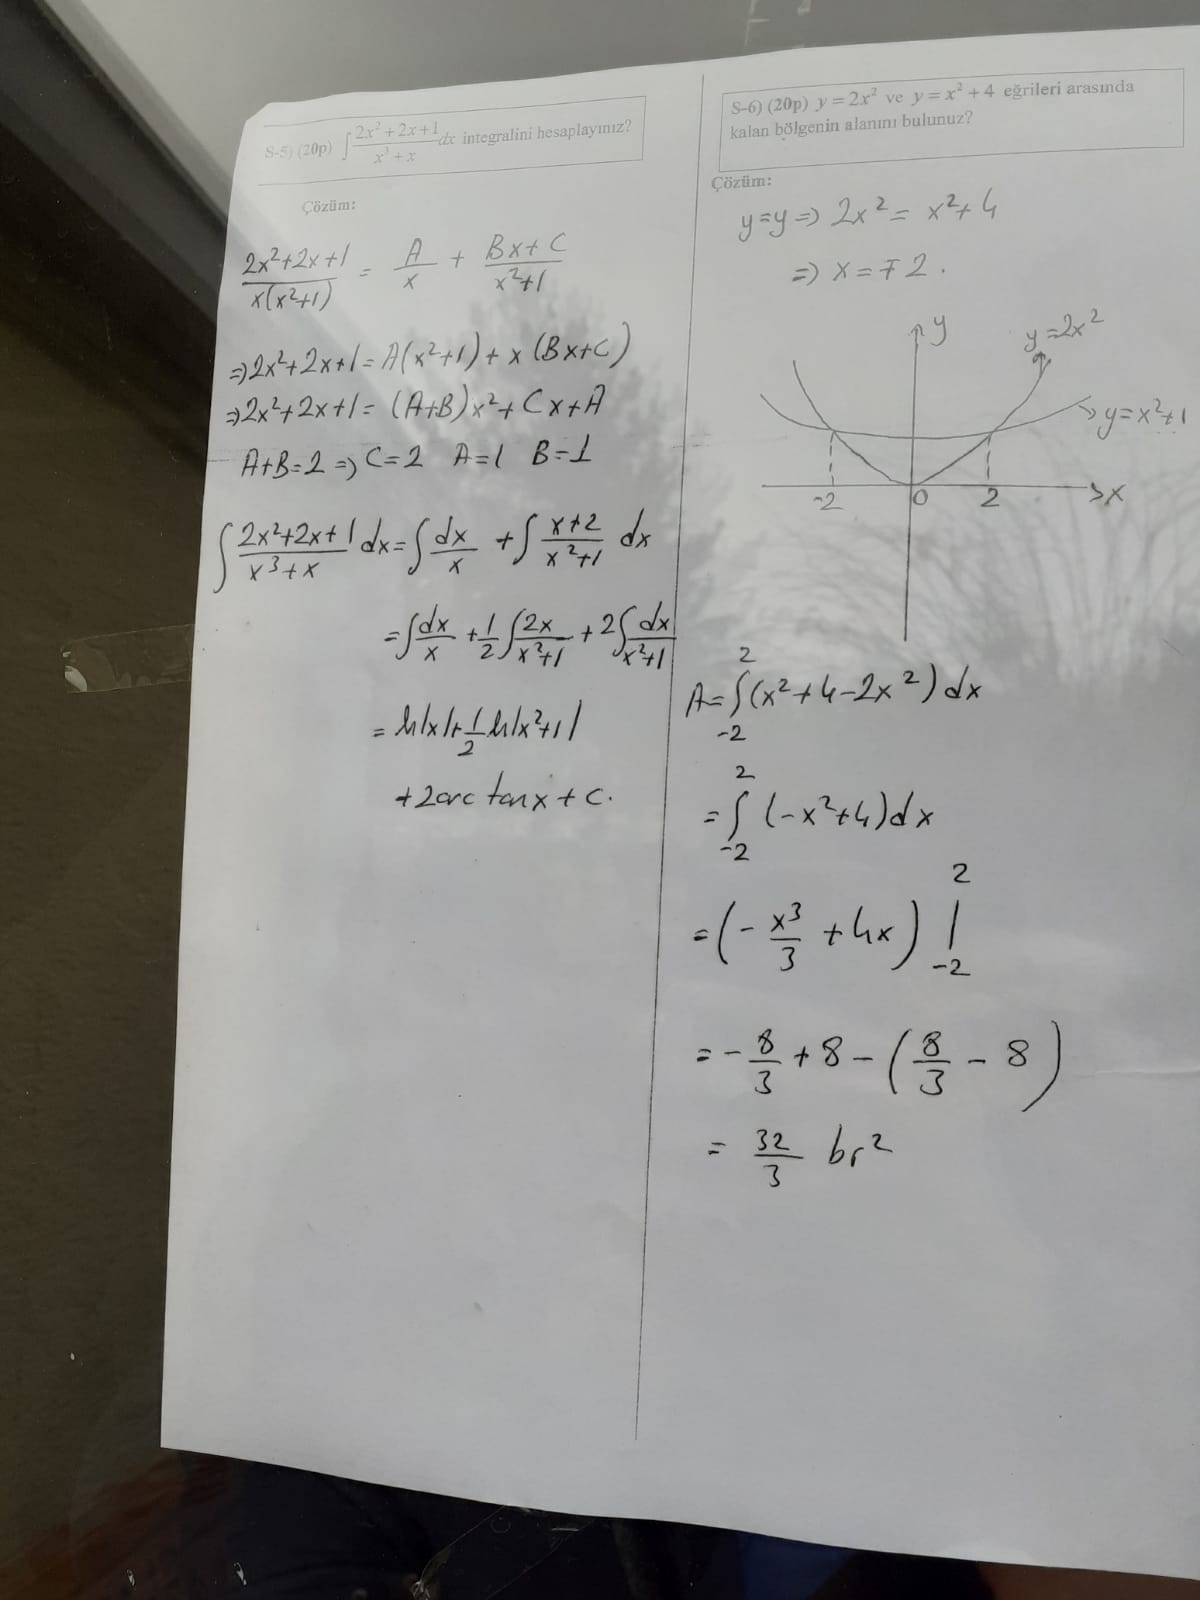 S-5) (20p) ∫ (2x² + 2x + 1)/(x³ + x) dx integralini hesaplayınız?
Çözüm:
(2x²+2x+1)/(x(x²+1)) = A/x + (Bx+C)/(x²+1)
⇒ 2x²+2x+1 = A(x²+1) + x(Bx+C)
⇒ 2x²+2x+1 = (A+B)x² + Cx + A
A+B=2 ⇒ C=2 A=1 B=1
∫ (2x²+2x+1)/(x³+x) dx = ∫ dx/x + ∫ (x+2)/(x²+1) dx
= ∫ dx/x + 1/2 ∫ 2x/(x²+1) + 2 ∫ dx/(x²+1)
= ln|x| + 1/2 ln|x²+1|
+ 2arc tanx + c.
S-6) (20p) y = 2x² ve y = x² + 4 eğrileri arasında
kalan bölgenin alanını bulunuz?
Çözüm:
y=y ⇒ 2x² = x²+4
⇒ x = ∓2.
y
y=2x²
y=x²+1
-2 0 2 x
A = ∫₋₂² (x²+4-2x²) dx
= ∫₋₂² (-x²+4) dx
= (- x³/3 + 4x) |₋₂²
= - 8/3 + 8 - (8/3 - 8)
= 32/3 br²